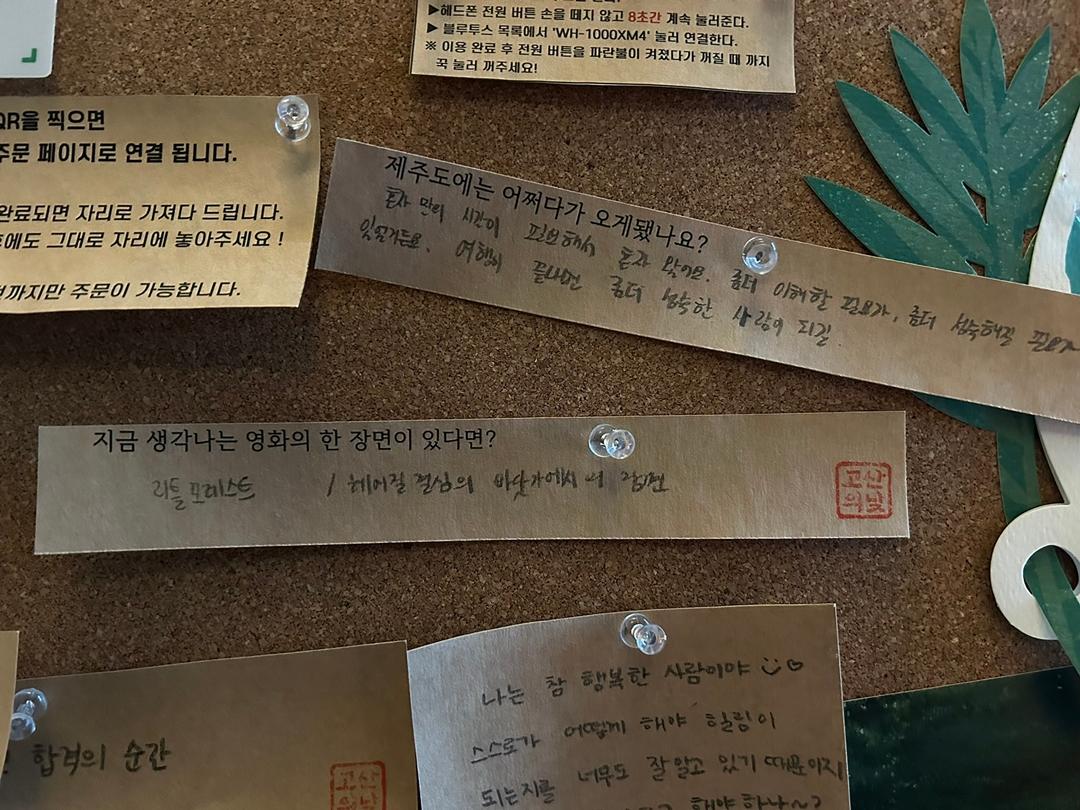 ▶헤드폰 전원 버튼 손을 떼지 않고 8초간 계속 눌러준다.
▶ 블루투스 목록에서 'WH-1000XM4' 눌러 연결한다.
※ 이용 완료 후 전원 버튼을 파란불이 켜졌다가 꺼질 때 까지
꾹 눌러 꺼주세요!
QR을 찍으면
주문 페이지로 연결 됩니다.
완료되면 자리로 가져다 드립니다.
에도 그대로 자리에 놓아주세요 !
까지만 주문이 가능합니다.
제주도에는 어쩌다가 오게됐나요?
혼자 만의 시간이 필요해서 혼자 왔어요. 좀더 이해할 필요가, 좀더 성숙해질 필요가
있었거든요. 여행이 끝나면 좀더 성숙한 사람이 되길.
지금 생각나는 영화의 한 장면이 있다면?
리틀 포레스트 / 헤어질 결심의 바닷가에서 장면
고산
의낮
나는 참 행복한 사람이야
스스로가 어떻게 해야 힐링이
되는지를 너무도 잘 알고 있기 때문이지
해야하나~?
합격의 순간
고산